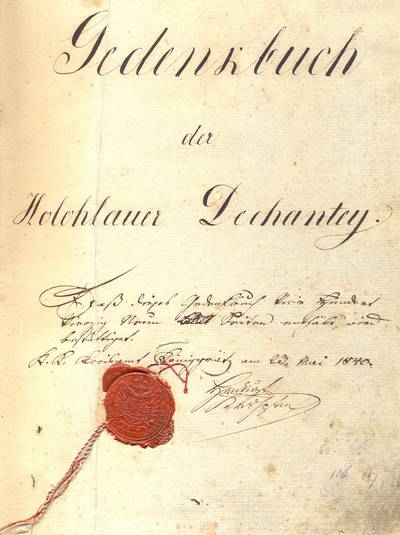 Gedenkbuch
der
Holohlauer Dechantey.
Daß dieses Gedenkbuch
Vierzig Neun Seiten enthält, wird
bestättiget.
K. K. Kreisamt Königgratz am 22 Mai 1840.